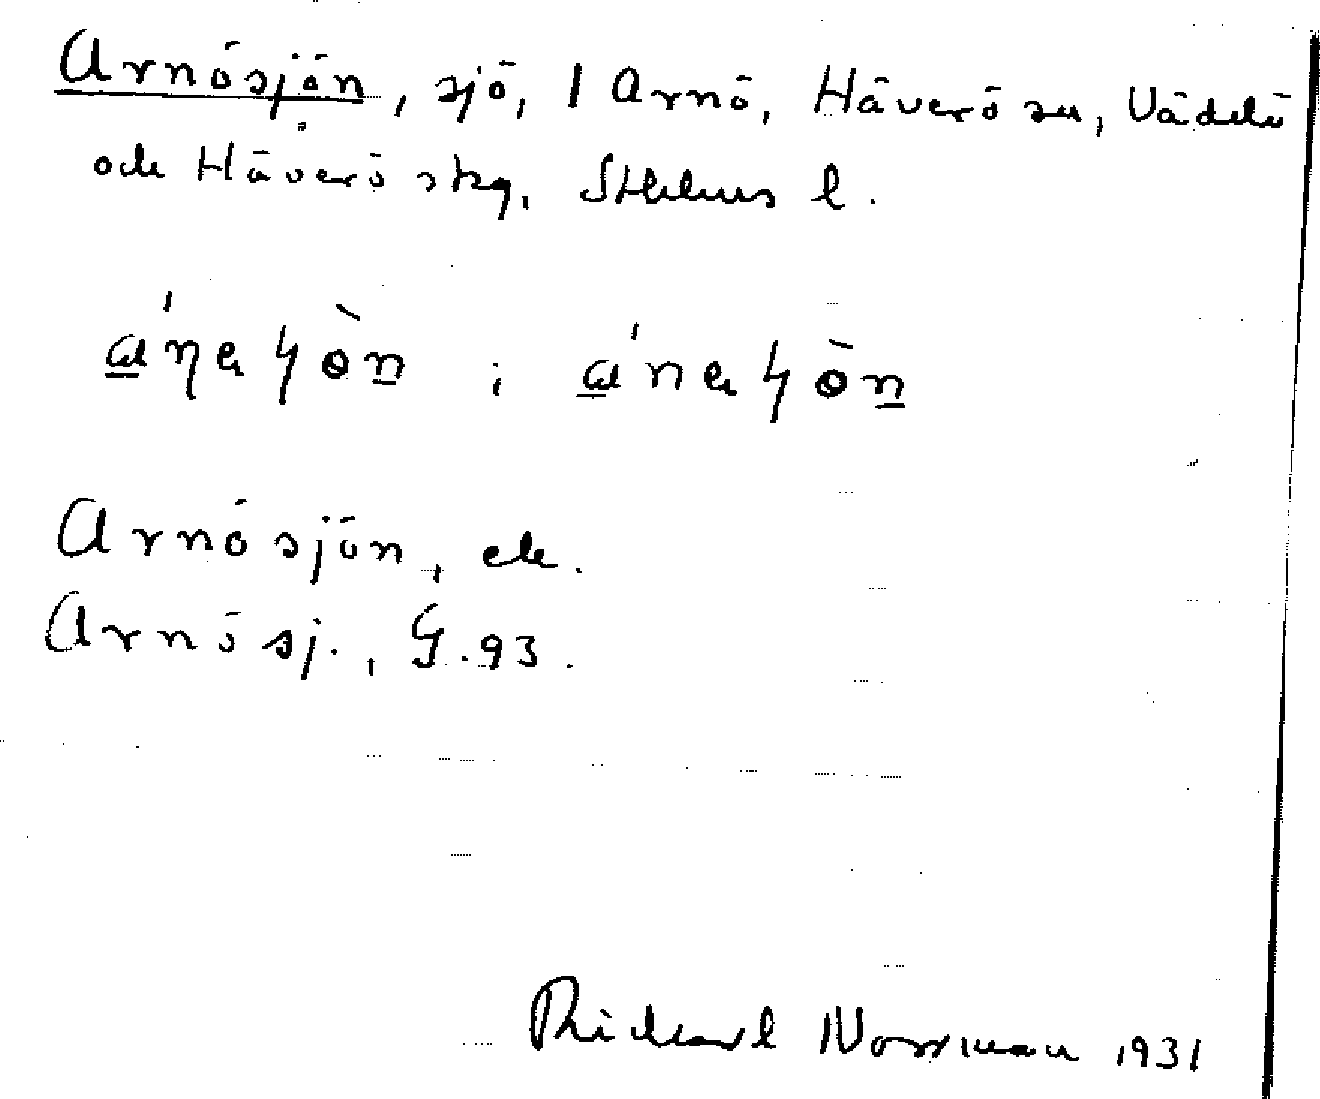 Arnösjön, sjö, 1 Arnö, Häverö sn, Väddö
och Häverö skg, Sthlms l.
Arnösjön, ek.
Arnö sj., G. 93.
Rickard Norrman 1931